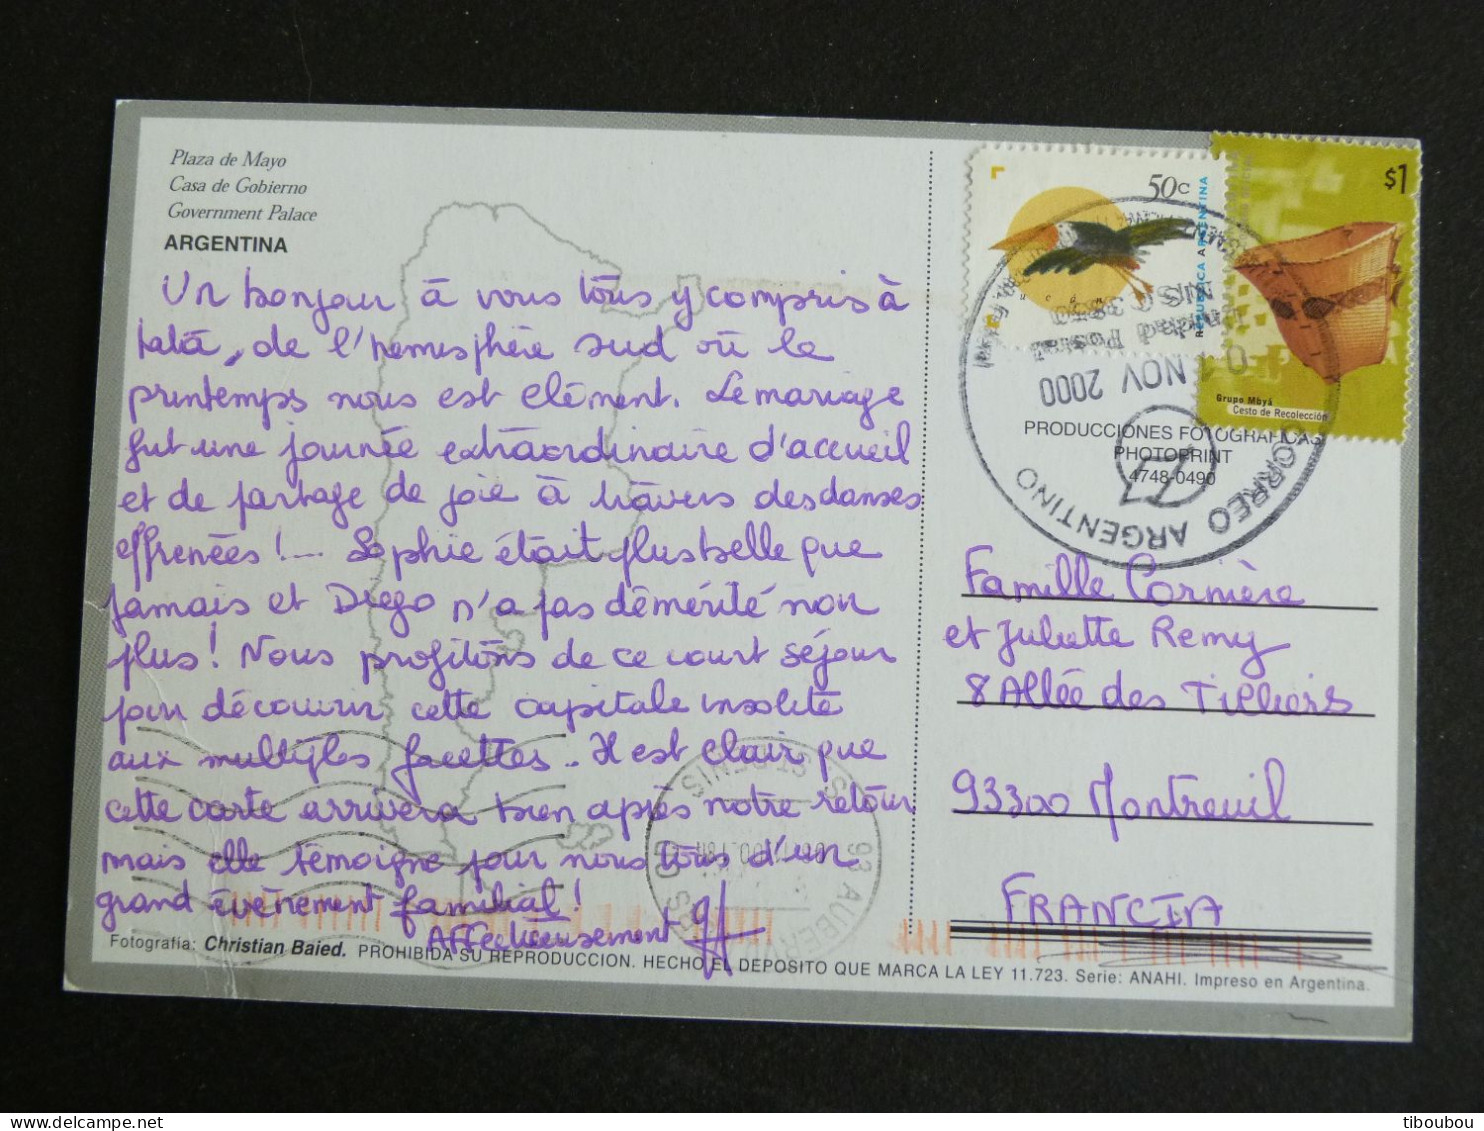 Plaza de Mayo
Casa de Gobierno
Government Palace
ARGENTINA
Un bonjour à vous tous y compris à
de l'hémisphère sud où le
printemps nous est clément. Le mariage
fut une journée extraordinaire d'accueil
et de partage de joie à travers des danses
effrenées !... Sophie était plus belle que
jamais et Diego n'a pas démérité non
plus ! Nous profitons de ce court séjour
pour découvrir cette capitale insolite
aux multiples facettes. Il est clair que
cette carte arrivera bien après notre retour
mais elle témoigne pour nous tous d'un
grand évènement familial !
Affectueusement
Fotografía: Christian Baied. PROHIBIDA SU REPRODUCCION. HECHO EL DEPOSITO QUE MARCA LA LEY 11.723. Serie: ANAHI. Impreso en Argentina.
50c
REPUBLICA ARGENTINA
$1
Grupo Mbyá
Cesto de Recolección
Unidad Postal
01 NOV 2000
CORREO ARGENTINO
PRODUCCIONES FOTOGRAFICAS
PHOTOPRINT
4748-0490
Famille Cornière
et Juliette Remy
8 Allée des Tilliers
93300 Montreuil
FRANCIA
tiboubou